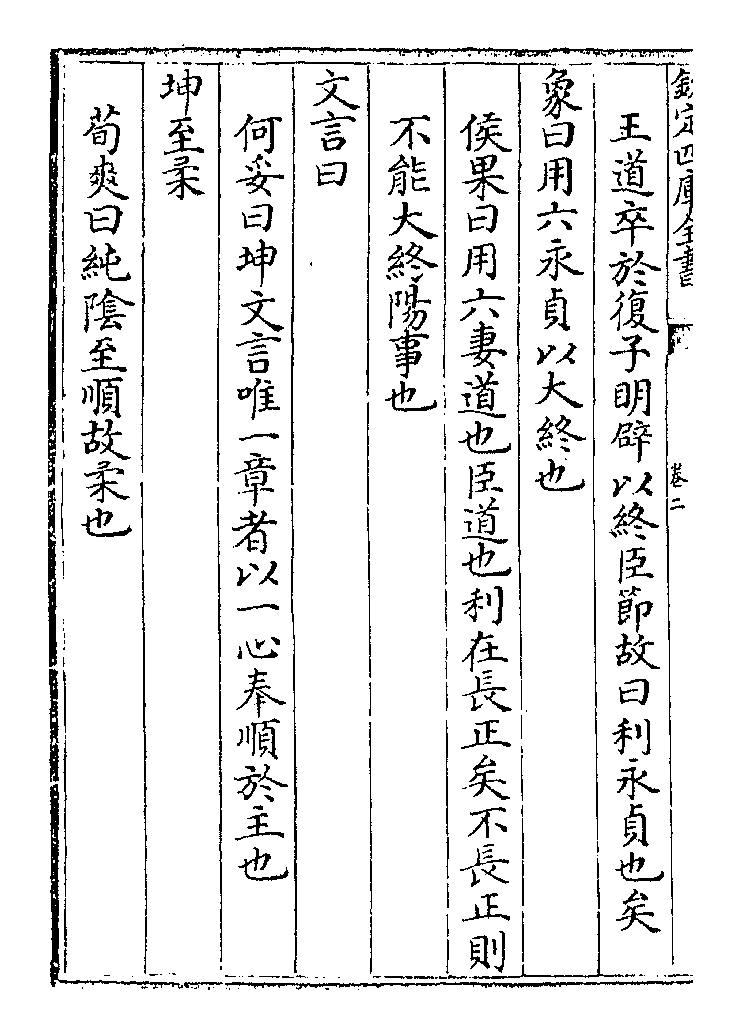 欽定四庫全書
卷二
王道卒於復子明辟以終臣節故曰利永貞也矣
象曰用六永貞以大終也
侯果曰用六妻道也臣道也利在長正矣不長正則
不能大終陽事也
文言曰
何妥曰坤文言唯一章者以一心奉順於主也
坤至柔
荀爽曰純陰至順故柔也